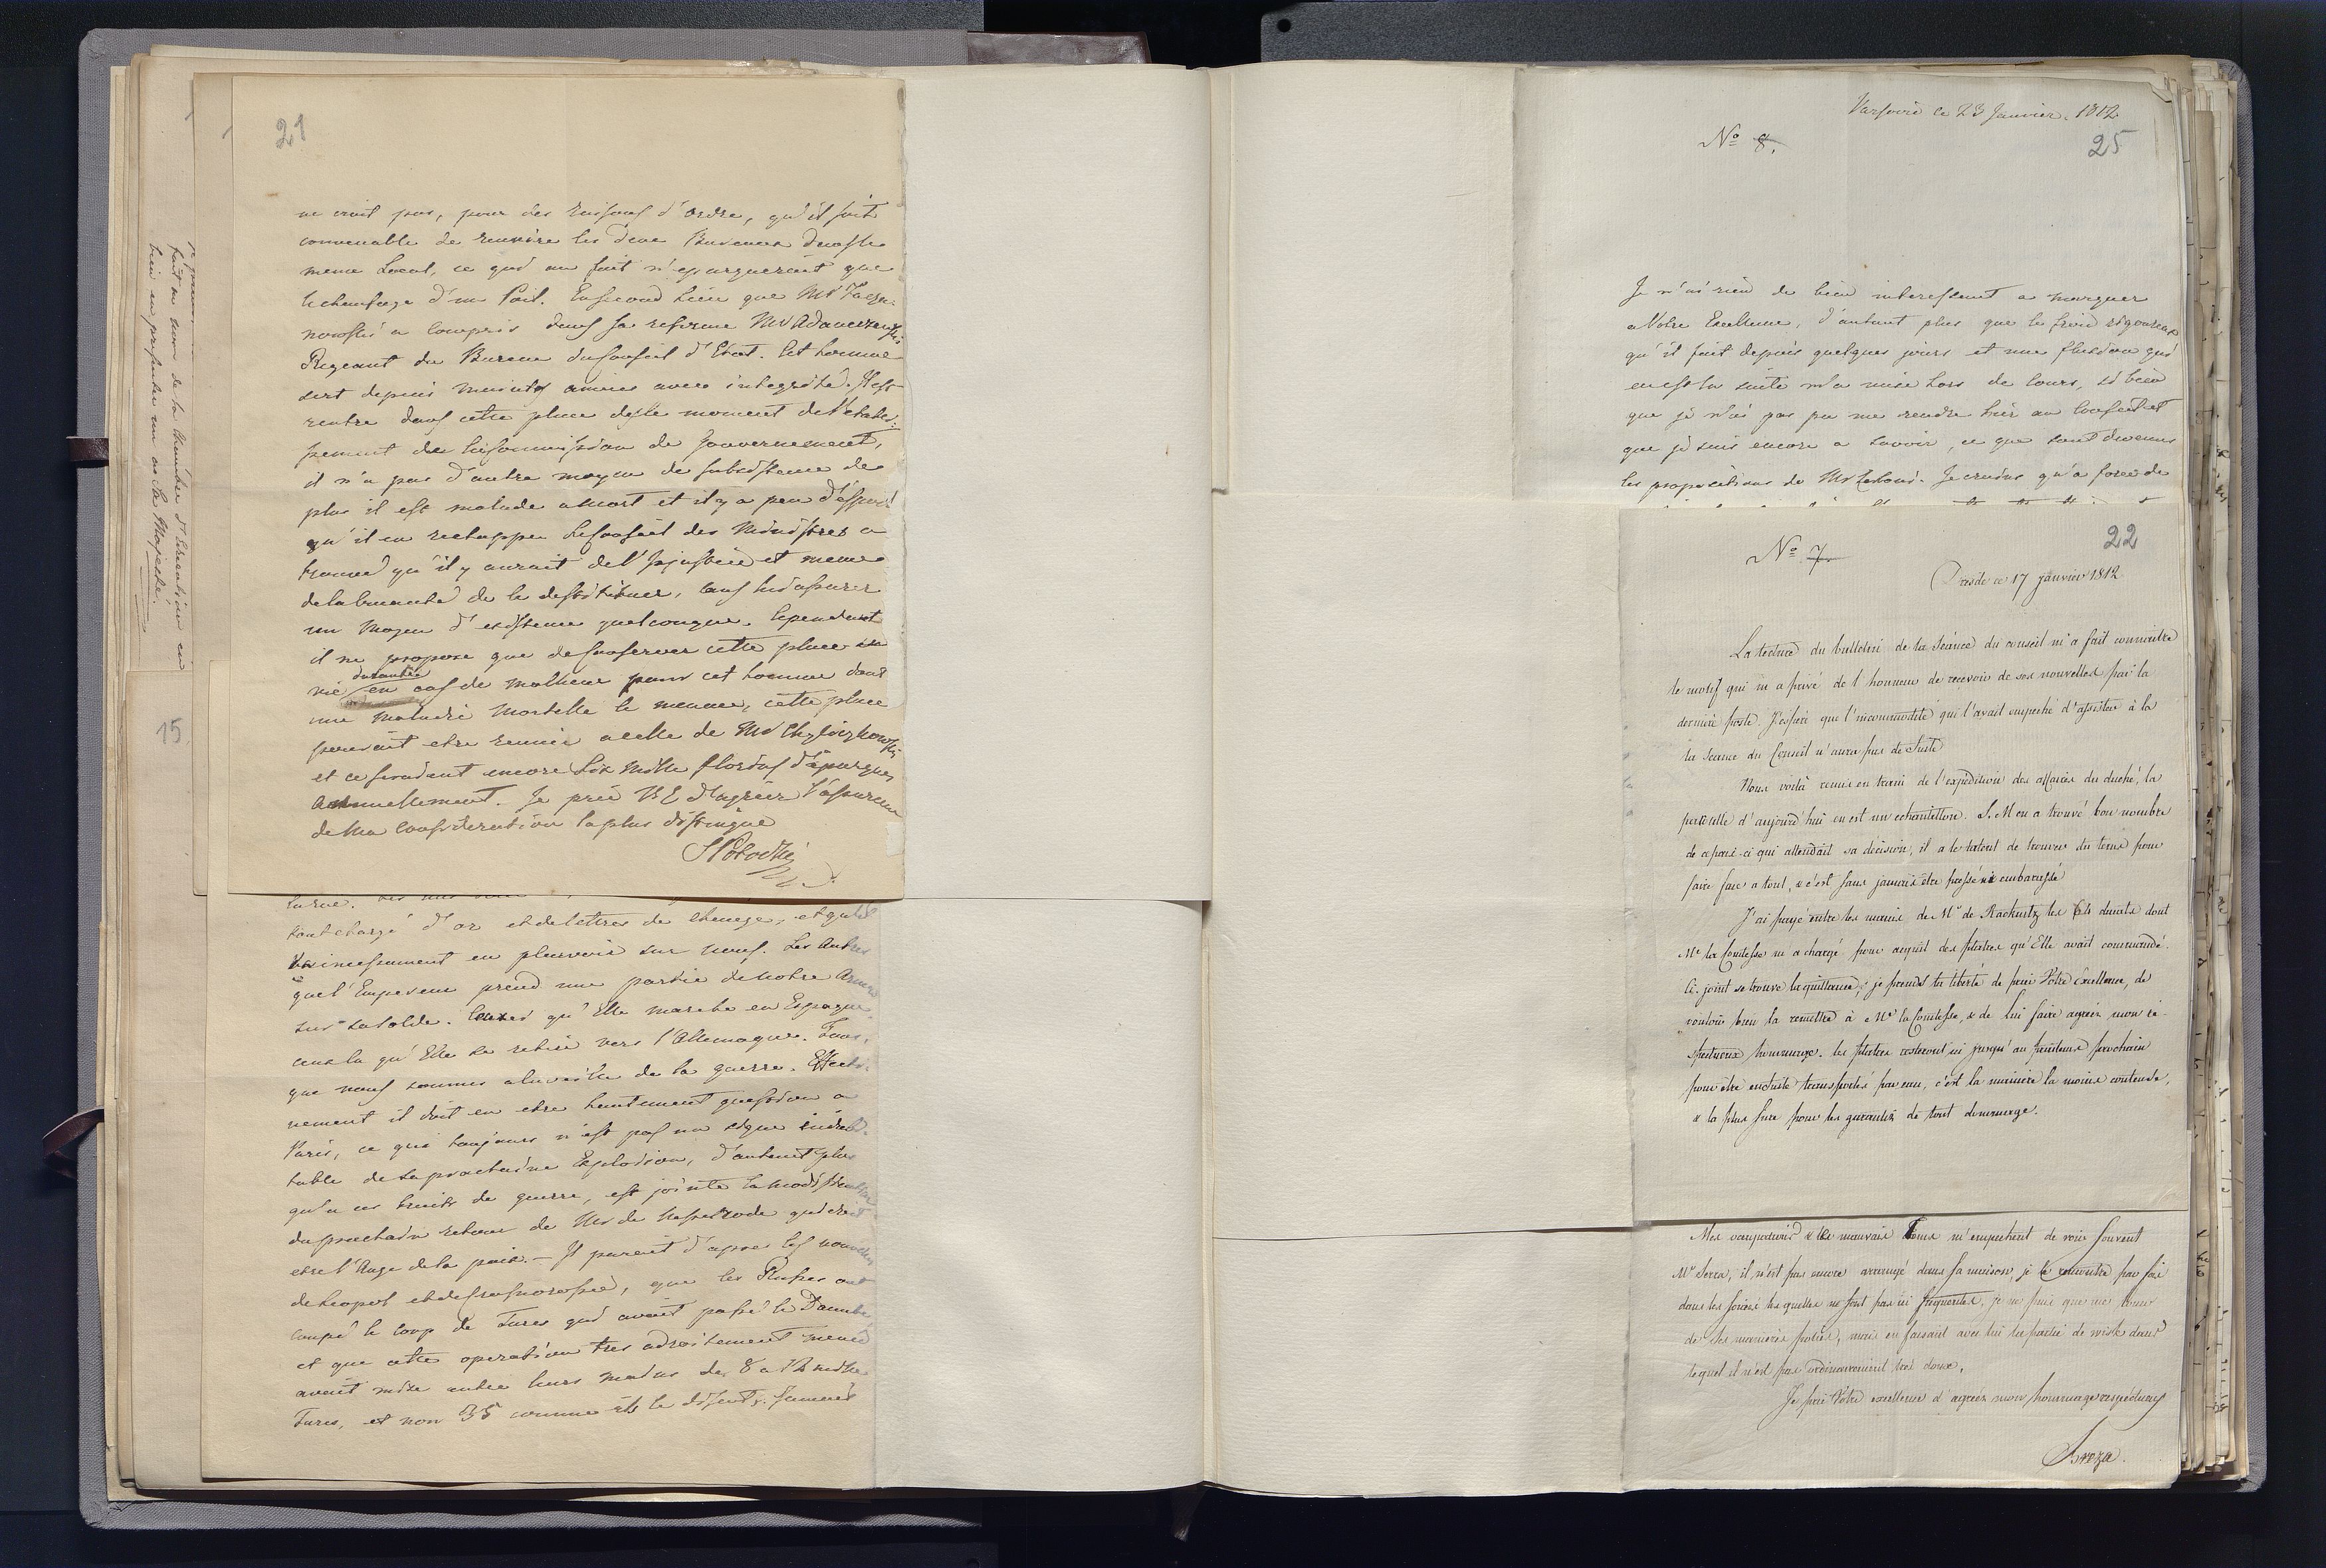 21
ne croit pas, pour des raisons d'ordre, qu'il soit
convenable de reunire les deux Bureaux dans le
meme Local, ce qui au fait n'epargnerait que
le chaufage d'un Poil. En second lieu que Mr
nowski a compris dans sa reforme Mr
Regeant du Bureau du Conseil d'Etat. Cet homme
sert depuis maintes annees avec integrité. Il est
rentre dans cette place des le moment de l'etablis-
sement de la Commission de Gouvernement,
il n'a pas d'autre moyen de subsistence de
plus il est malade a mort et il y a peu d'espoir
qu'il en rechappe. Le Conseil des Ministres a
trouvé qu'il y aurait de l'Injustice et meme
de la cruauté de le destituer, sans lui assurer
un moyen d'existence quelconque. Cependant
il ne propose que de conserver cette place sa
vie durante en cas de malheur pour cet homme dont
une maladie mortelle le menace, cette place
pouvait etre reunie a celle de Mr
et ce seroient encore Six Mille florins d'épargnes
Annuellement. Je prie V E d'agréer l'assurance
de Ma Consideration la plus distingue
SPotocki
tout chargé d'or et de lettres de change, et qu'il
va incessament en pleuvoir sur nous. Les Autres
que l'Empereur prend une partie de notre Armee
sur sa solde. qu'Elle marche en Espagne
ceux la qu'Elle se retire vers l'Allemagne. Tous,
que nous sommes a la veille de la guerre. Effecti-
vement il doit en etre hautement question a
Paris, ce qui toujours n'est pas un signe indubi-
table de sa prochaine Explosion, d'autant plus
qu'a ces bruits de guerre, est jointe
du prochain retour de Mr de qui doit
etre l'Ange de la paix. — Il parait d'apres les nouvelles
de Leopol et de que les Russes ont
coupé le Corp de Turcs qui avait passé le Danube
et que cette operation tres adroitement menee
avait mise entre leurs mains de 8 a 12 mille
Turcs, et non 35 comme ils le disent
fait au nom de la Chambre d'Education en
bien en presenter un a Sa Majesté.
15
Varsovie le 23 Janvier, 1812
No 8.
25
Je n'ai rien de bien interessant a marquer
a Votre Excellence, d'autant plus que le froid rigoureux
qu'il fait depuis quelques jours et une fluxion qui
en est la suite m'a mise hors de cours, si bien
que je n'ai pas pu me rendre hier au Conseil et
que je suis encore a savoir, ce que sont devenus
les propositions de Mr. Je crains qu'a force de
22
No 7
Dresde ce 17 janvier 1812
La lecture du bulletin de la séance du conseil m'a fait connaitre
le motif qui m'a privé de l'honneur de recevoir de ses nouvelles par la
derniere poste. J'espere que l'incommodité qui l'avait empeché d'assister à la
la seance du Conseil n'aura pas de suite
Nous voilà remis en train de l'expedition des affaires du duché, la
d'aujourd'hui en est un echantillon. S. M en a trouvé bon nombre
de ici qui attendait sa décision, il a le talent de trouver du tems pour
faire face a tout, & c'est sans jamais être pressé ni embarassé
J'ai payé entre les mains de Mr de Racknitz les 64 ducats dont
Me la Comtesse m'a chargé pour acquit des platres qu'Elle avait commandé.
Ci-joint se trouve la quittance, je prends la liberté de prier Votre Excellence, de
vouloir bien la remettre à Me la Comtesse, & de lui faire agréer mon re-
spectueux hommage. les platres resteront ici jusqu'au printems prochain
pour être ensuite transportés par eau, c'est la maniere la moins couteuse,
& la plus sure pour les garantir de tout dommage.
Mes occupations & le mauvais tems m'empechent de voir souvent
Mr Serra, il n'est pas encore arrangé dans sa maison, je le rencontre par fois
dans les soirées les quelles ne sont pas ici frequentes, je ne puis que me louer
de ses manieres polies, mais en faisant avec lui la partie de wisk dans
lequel il n'est pas ordinairement tres doux.
Je prie Votre excellence d'agréer mon hommage respectueux
Breza.